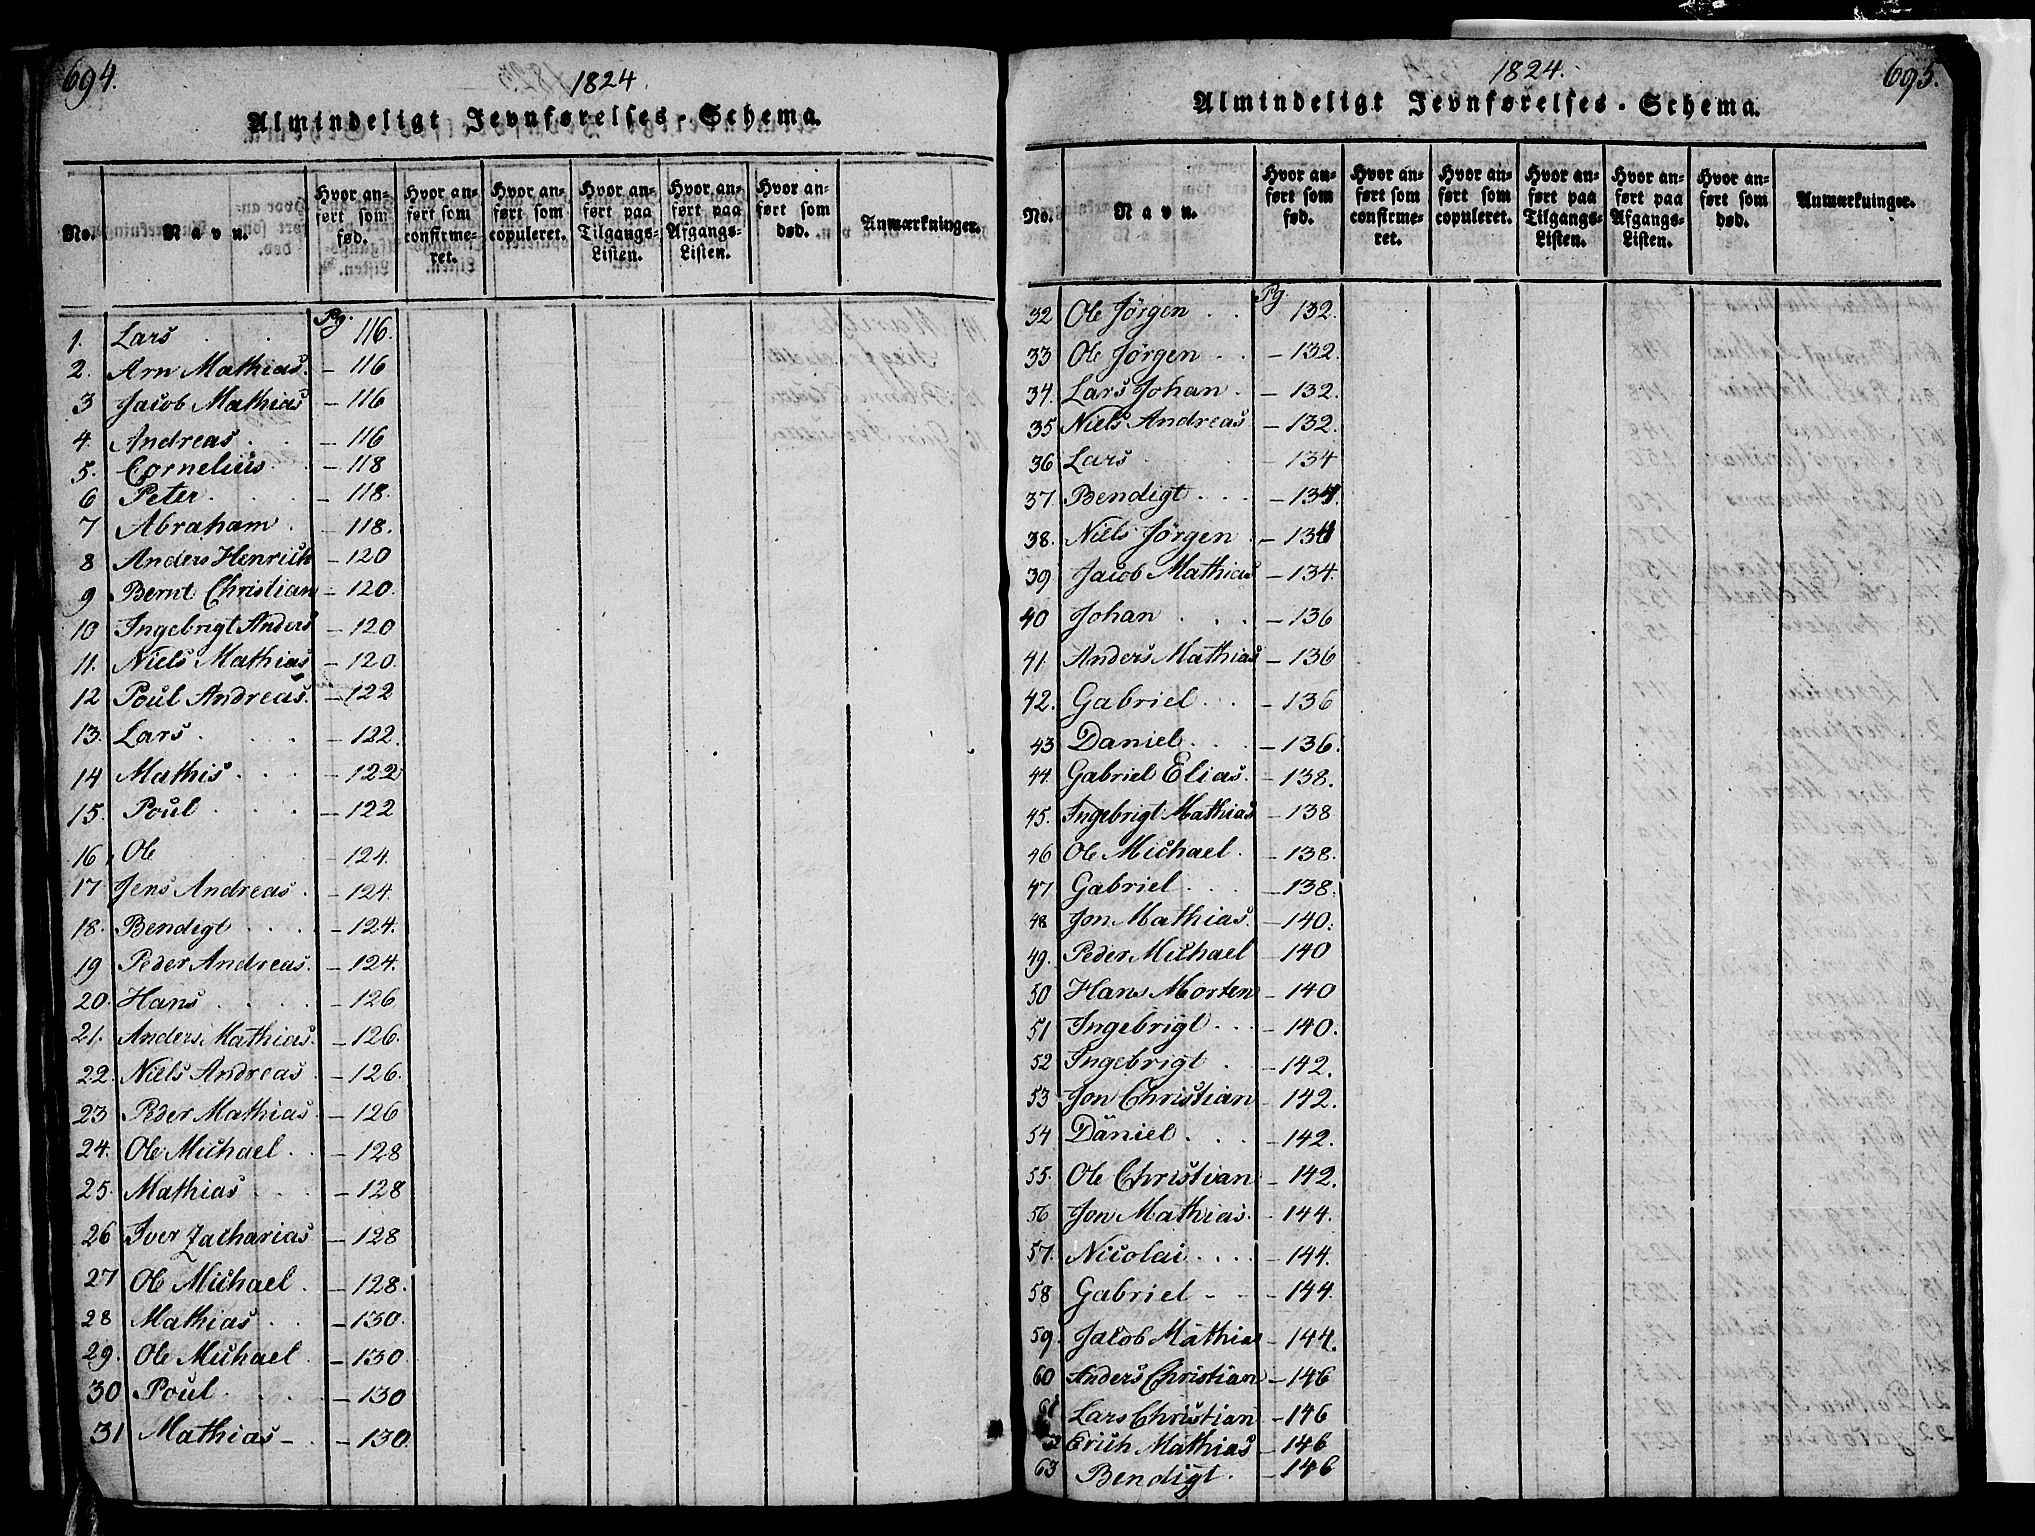 694.
1824.
Almindeligt Jevnførelses-Schema.
No. Navn. Hvor anført som fød. Hvor anført som confirmeret. Hvor anført som copuleret. Hvor anført paa Tilgangs-Listen. Hvor anført paa Afgangs-Listen. Hvor anført som død. Anmærkninger.
1. Lars Pg. 116.
2. Arn Mathias. - 116
3 Jacob Mathias - 116
4. Andreas - 116
5. Cornelius - 118
6 Peter - 118.
7 Abraham - 118.
8 Anders Henrich - 120
9 Bernt Christian - 120.
10 Ingebrigt Anders - 120
11. Niels Mathias - 120.
12 Poul Andreas. - 122
13. Lars - 122.
14 Mathis - 122
15. Poul - 122
16 Ole - 124.
17 Jens Andreas - 124.
18. Bendigt - 124.
19 Peder Andreas. - 124.
20. Hans - 126
21. Anders Mathias. - 126.
22. Niels Andreas - 126.
23 Peder Mathias - 126
24. Ole Michael - 128
25. Mathias - 128
26 Iver Zacharias - 128
27 Ole Michael - 128.
28 Mathias - 130.
29. Ole Michael - 130
30 Poul - 130
31 Mathias - 130.
695.
1824.
Almindeligt Jevnførelses-Schema.
No. Navn. Hvor anført som fød. Hvor anført som confirmeret. Hvor anført som copuleret. Hvor anført paa Tilgangs-Listen. Hvor anført paa Afgangs-Listen. Hvor anført som død. Anmærkninger.
32 Ole Jörgen Pg 132.
33 Ole Jörgen - 132.
34. Lars Johan - 132.
35 Niels Andreas - 132.
36 Lars - 134
37. Bendigt - 134.
38. Niels Jörgen - 134
39 Jacob Mathias - 134.
40 Johan - 136
41. Anders Mathias - 136
42. Gabriel - 136
43 Daniel - 136.
44. Gabriel Elias. - 138.
45. Ingebrigt Mathias - 138
46 Ole Michael - 138.
47 Gabriel - 138.
48 Jon Mathias. - 140.
49. Peder Michael - 140
50 Hans Morten - 140
51 Ingebrigt - 140.
52 Ingebrigt - 142.
53 Jon Christian - 142.
54 Daniel - 142.
55. Ole Christian - 142.
56 Jon Mathias. - 144.
57. Nicolai - 144.
58 Gabriel - 144.
59. Jacob Mathias - 144.
60 Anders Christian - 146
61 Lars Christian - 146
62 Erich Mathias - 146
63 Bendigt. - 146